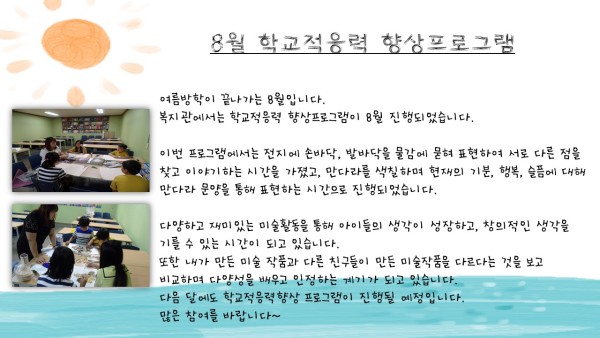 8월 학교적응력 향상프로그램
여름방학이 끝나가는 8월입니다.
복지관에서는 학교적응력 향상프로그램이 8월 진행되었습니다.
이번 프로그램에서는 전지에 손바닥, 발바닥을 물감에 묻혀 표현하여 서로 다른 점을
찾고 이야기하는 시간을 가졌고, 만다라를 색칠하며 현재의 기분, 행복, 슬픔에 대해
만다라 문양을 통해 표현하는 시간으로 진행되었습니다.
다양하고 재미있는 미술활동을 통해 아이들의 생각이 성장하고, 창의적인 생각을
기를 수 있는 시간이 되고 있습니다.
또한 내가 만든 미술 작품과 다른 친구들이 만든 미술작품을 다르다는 것을 보고
비교하며 다양성을 배우고 인정하는 계기가 되고 있습니다.
다음 달에도 학교적응력향상 프로그램이 진행될 예정입니다.
많은 참여를 바랍니다~